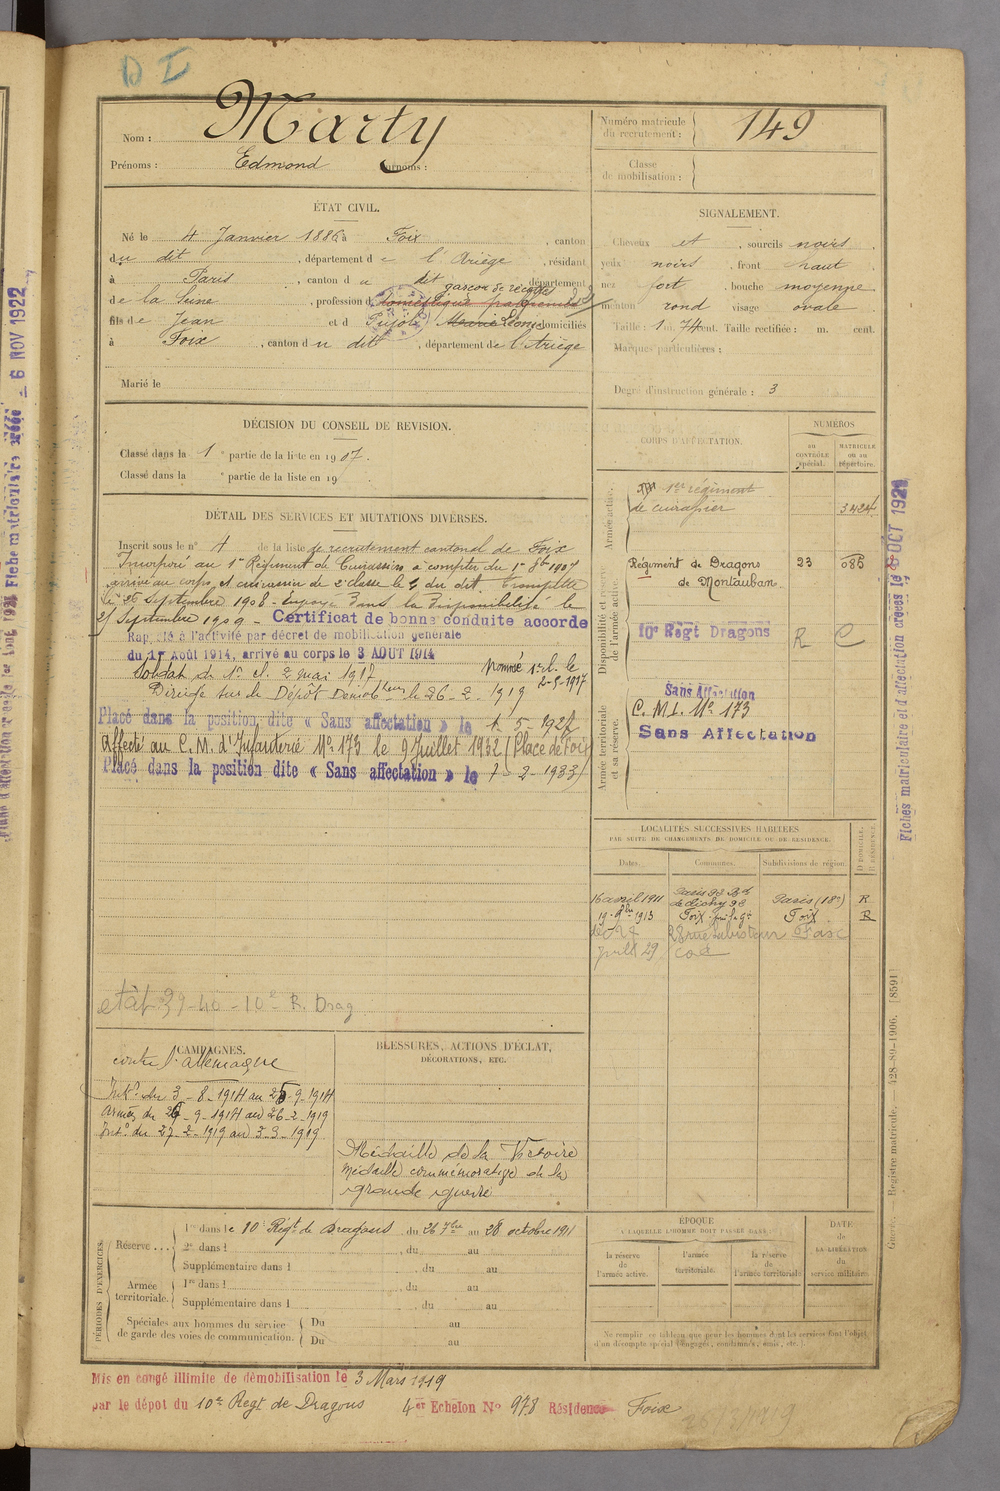 D I
Nom : Marty
Prénoms : Edmond Surnoms :
Numéro matricule du recrutement : 149
Classe de mobilisation :
ÉTAT CIVIL.
Né le 4 Janvier 1886 à Foix , canton
du dit , département de l'Ariège , résidant
à Paris , canton du dit département
de la Seine , profession de garçon de recettes
fils de Jean et de Pujol Léonie domiciliés
à Foix , canton du dit , département de l'Ariège
Marié le
SIGNALEMENT.
Cheveux et , sourcils noirs ,
yeux noirs , front haut ,
nez fort , bouche moyenne ,
menton rond visage ovale .
Taille : 1 m. 74 cent. Taille rectifiée : m. cent.
Marques particulières :
Degré d'instruction générale : 3
DÉCISION DU CONSEIL DE REVISION.
Classé dans la 1 e partie de la liste en 1907.
Classé dans la e partie de la liste en 19
DÉTAIL DES SERVICES ET MUTATIONS DIVERSES.
Inscrit sous le n° 4 de la liste de recrutement cantonal de Foix
Incorporé au 1er Régiment de Cuirassiers à compter du 1er 8bre 1907
arrivé au corps et cuirassier de 2e classe le 4 du dit Trompette
le 26 Septembre 1908 - Envoyé dans la Disponibilité le
25 Septembre 1909 - Certificat de bonne conduite accordé
Rappelé à l'activité par décret de mobilisation générale
du 1er Août 1914, arrivé au corps le 3 AOUT 1914
Soldat de 1re cl. 2 mai 1917 Nommé
2-5-1917
Dirigé sur le Dépôt Démobteur le 26-2-1919
Placé dans la position dite « Sans affectation » le 1-5-1927
Affecté au C. M. d'Infanterie N° 173 le 9 Juillet 1932 (Place de Foix)
Placé dans la position dite « Sans affectation » le 7-2-1933
état 39-40 - 10e R. Drag
CORPS D'AFFECTATION.
NUMÉROS
au contrôle spécial.
matricule ou au répertoire.
Armée active.
1er régiment
de cuirassier 3424
Disponibilité et réserve de l'armée active.
Régiment de Dragons 23 086
de Montauban.
10e Régt Dragons R C
Armée territoriale et sa réserve.
Sans Affectation
C. M. I. N° 173
Sans Affectation
LOCALITÉS SUCCESSIVES HABITÉES
PAR SUITE DE CHANGEMENTS DE DOMICILE OU DE RÉSIDENCE.
Dates. Communes. Subdivisions de région. D DOMICILE. R RÉSIDENCE.
16 avril 1911 Paris 98 Bd de Clichy 98 Paris (18e) R
1913 Foix Foix R
CAMPAGNES.
contre l'allemagne
Intr du 3-8-1914 au 25-9-1914
Armées du 26-9-1914 au 26-2-1919
Intr du 27-2-1919 au 3-3-1919
BLESSURES, ACTIONS D'ÉCLAT,
DÉCORATIONS, ETC.
Médaille de la Victoire
Médaille commémorative de la
grande guerre
PÉRIODES D'EXERCICES.
Réserve ...
1re dans le 10e Régt de Dragons du 26 7bre au 28 octobre 1911
2e dans l , du au
Supplémentaire dans l , du au
Armée territoriale.
1re dans l , du au
Supplémentaire dans l , du au
Spéciales aux hommes du service de garde des voies de communication.
Du au
Du au
ÉPOQUE
À LAQUELLE L'HOMME DOIT PASSER DANS :
la réserve de l'armée active.
l'armée territoriale.
la réserve de l'armée territoriale
DATE de LA LIBÉRATION du service militaire.
Ne remplir ce tableau que pour les hommes dont les services font l'objet
d'un décompte spécial (engagés, condamnés, omis, etc.).
Mis en congé illimité de démobilisation le 3 Mars 1919
par le dépot du 10e Régt de Dragons 4er Echelon N° 978 Résidence Foix
Fiches matriculaire et d'affectation créées le OCT 192
— Registre matricule. — 428-89-1906. [8591]
- 6 NOV 1922